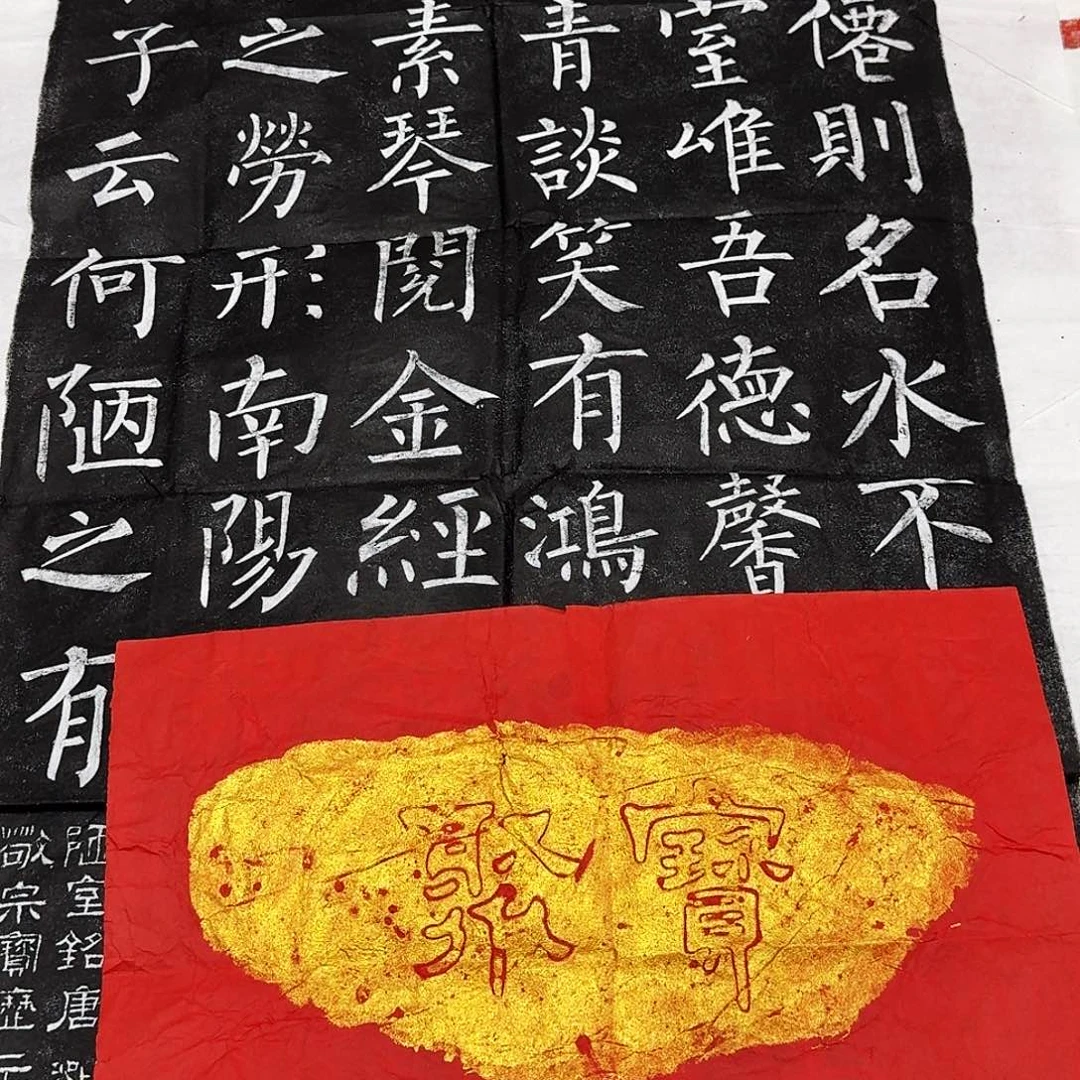 僊則名水不
室唯吾德馨
青談笑有鴻
素琴閱金經
之勞形南陽
子云何陋之有
陋室銘唐
敬宗寶歷元
聚寶